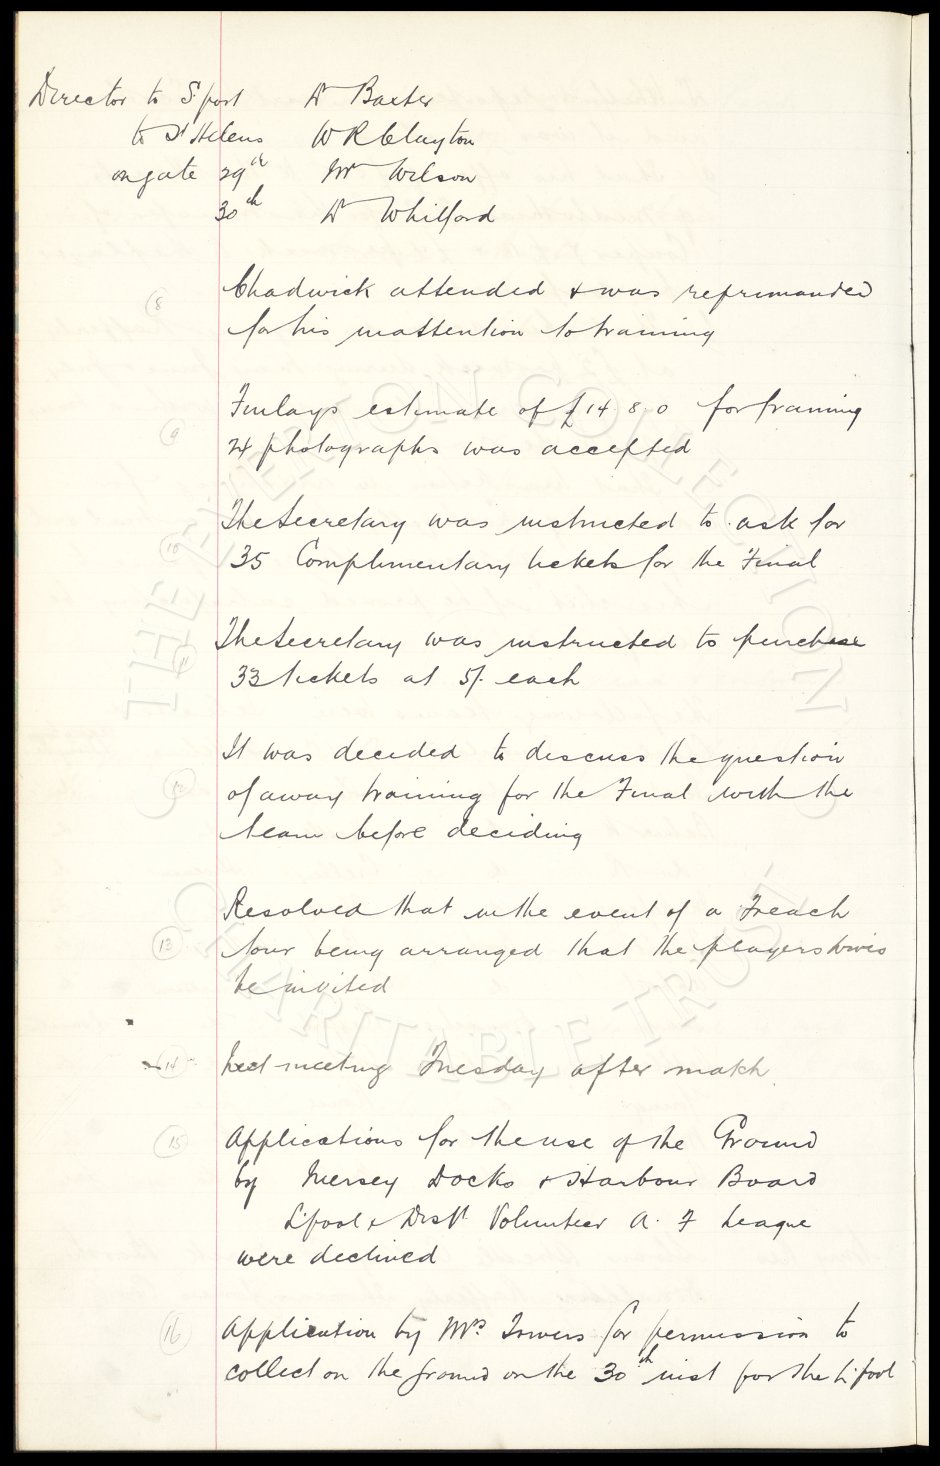 Director to S.port Dr Baxter
to St Helens W R Clayton
on gate 29th Mr Wilson
30th Dr Whitford
8 Chadwick attended & was reprimanded
for his inattention to training
9 Finlays estimate of £14.8.0 for framing
24 photographs was accepted
10 The Secretary was instructed to ask for
35 Complimentary tickets for the Final
11 The Secretary was instructed to purchase
33 tickets at 5/- each
12 It was decided to discuss the question
of away training for the Final with the
team before deciding
13 Resolved that in the event of a French
tour being arranged that the players wives
be invited
14 Next meeting Tuesday after match.
15 Applications for the use of the Ground
by Mersey Docks & Harbour Board
L'pool & Dist Volunteer A. F League
were declined
16 Application by Mrs. Towers for permission to
collect on the ground on the 30th inst for the L'pool
THE EVERTON COLLECTION
CHARITABLE TRUST